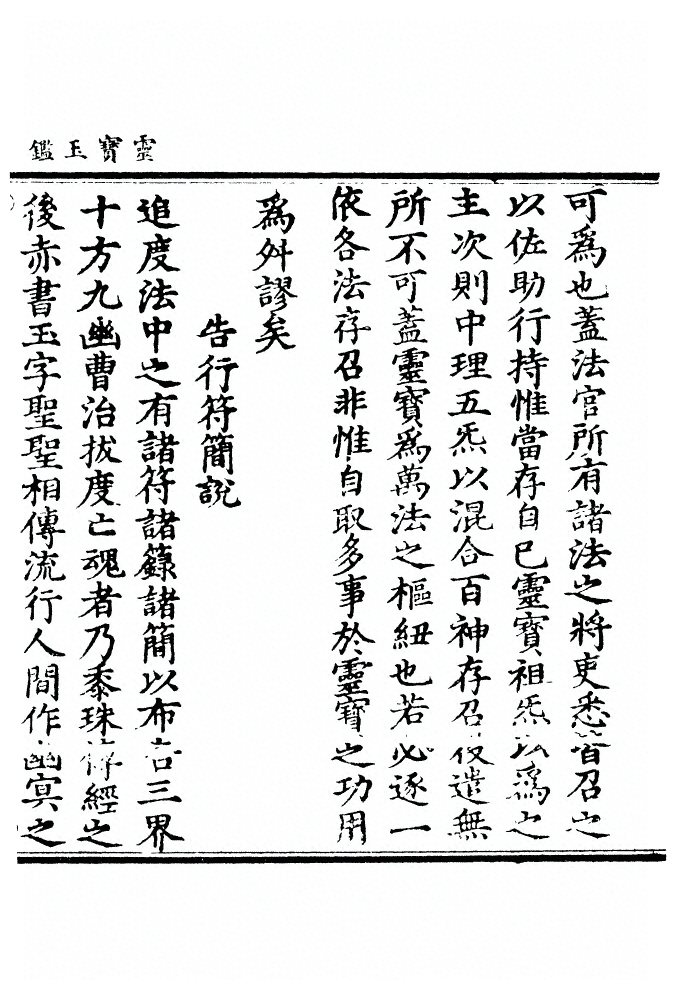 靈寶玉鑑
可爲也蓋法官所有諸法之將吏悉皆召之
以佐助行持惟當存自已靈寶祖炁以爲之
主次則中理五炁以混合百神存召役遣無
所不可蓋靈寶爲萬法之樞紐也若必逐一
依各法存召非惟自取多事於靈寶之功用
爲舛謬矣
告行符簡說
追度法中之有諸符諸籙諸簡以布告三界
十方九幽曹治拔度亡魂者乃黍珠釋經之
後赤書玉字聖聖相傳流行人間作幽冥之